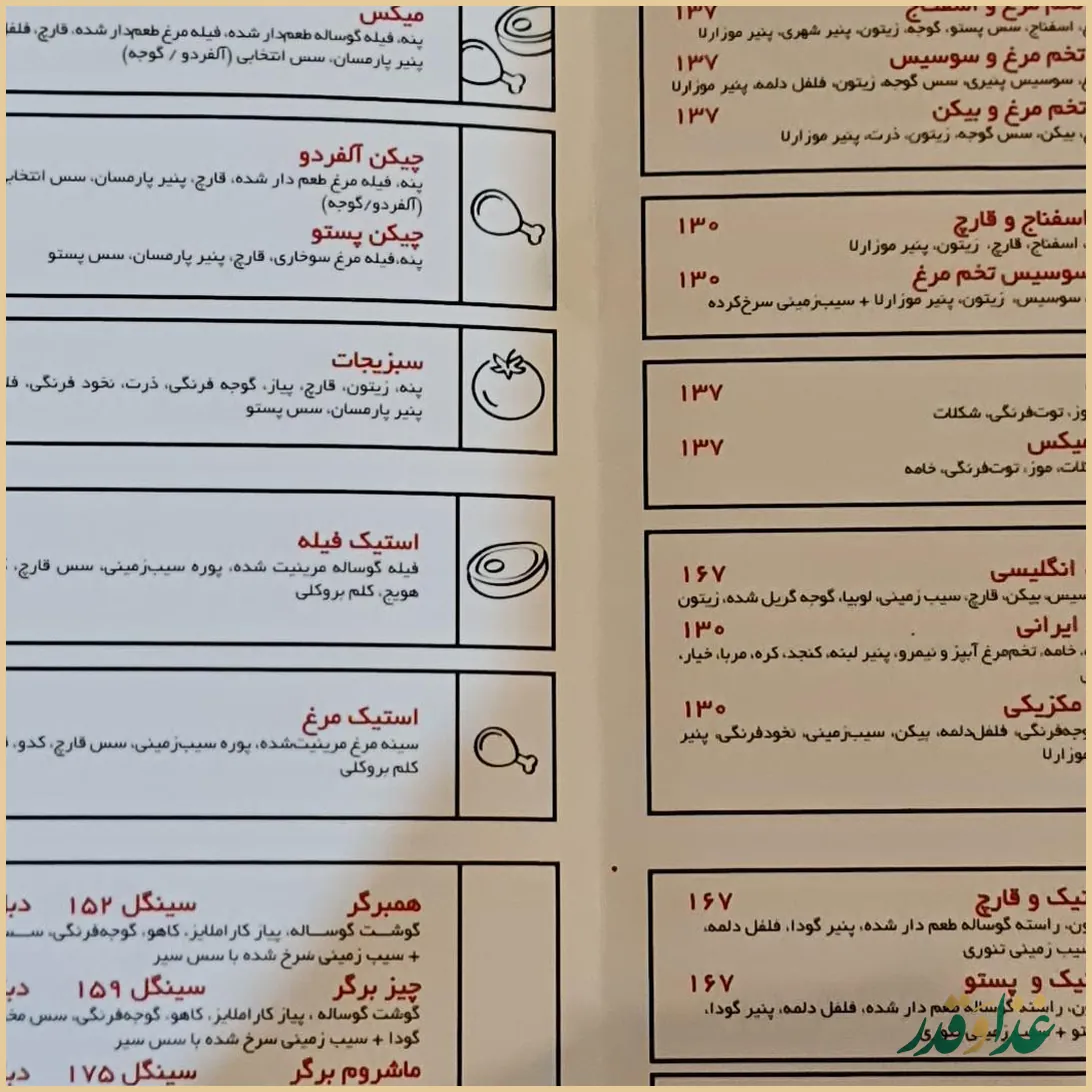 مرغ و اسفناج ۱۳۷
اسفناج، سس پستو، گوجه، زیتون، پنیر شهری، پنیر موزارلا
تخم مرغ و سوسیس ۱۳۷
سوسیس پنیری، سس گوجه، زیتون، فلفل دلمه، پنیر موزارلا
تخم مرغ و بیکن ۱۳۷
بیکن، سس گوجه، زیتون، ذرت، پنیر موزارلا
اسفناج و قارچ ۱۳۰
اسفناج، قارچ، زیتون، پنیر موزارلا
سوسیس تخم مرغ ۱۳۰
سوسیس، زیتون، پنیر موزارلا + سیب‌زمینی سرخ‌کرده
۱۳۷
توت‌فرنگی، شکلات
میکس ۱۳۷
موز، توت‌فرنگی، خامه
انگلیسی ۱۶۷
بیکن، قارچ، سیب زمینی، لوبیا، گوجه گریل شده، زیتون
ایرانی ۱۳۰
خامه، تخم‌مرغ آبپز و نیمرو، پنیر لبنه، کنجد، کره، مربا، خیار،
مکزیکی ۱۳۰
فلفل‌دلمه، بیکن، سیب‌زمینی، نخودفرنگی، پنیر
موزارلا
و قارچ ۱۶۷
راسته گوساله طعم دار شده، پنیر گودا، فلفل دلمه،
سیب زمینی تنوری
و پستو ۱۶۷
راسته گوساله طعم دار شده، فلفل دلمه، پنیر گودا،
میکس
پنه، فیله گوساله طعم‌دار شده، فیله مرغ طعم‌دار شده، قارچ،
پنیر پارمسان، سس انتخابی (آلفردو / گوجه)
چیکن آلفردو
پنه، فیله مرغ طعم دار شده، قارچ، پنیر پارمسان، سس
(آلفردو/گوجه)
چیکن پستو
پنه،فیله مرغ سوخاری، قارچ، پنیر پارمسان، سس پستو
سبزیجات
پنه، زیتون، قارچ، پیاز، گوجه فرنگی، ذرت، نخود فرنگی،
پنیر پارمسان، سس پستو
استیک فیله
فیله گوساله مرینیت شده، پوره سیب‌زمینی، سس قارچ،
هویج، کلم بروکلی
استیک مرغ
سینه مرغ مرینیت‌شده، پوره سیب‌زمینی، سس قارچ، کدو،
کلم بروکلی
همبرگر سینگل ۱۵۲
گوشت گوساله، پیاز کاراملایز، کاهو، گوجه‌فرنگی،
+ سیب زمینی سرخ شده با سس سیر
چیز برگر سینگل ۱۵۹
گوشت گوساله ، پیاز کاراملایز، کاهو، گوجه‌فرنگی، سس
گودا + سیب زمینی سرخ شده با سس سیر
ماشروم برگر سینگل ۱۷۵
غذا و قدر